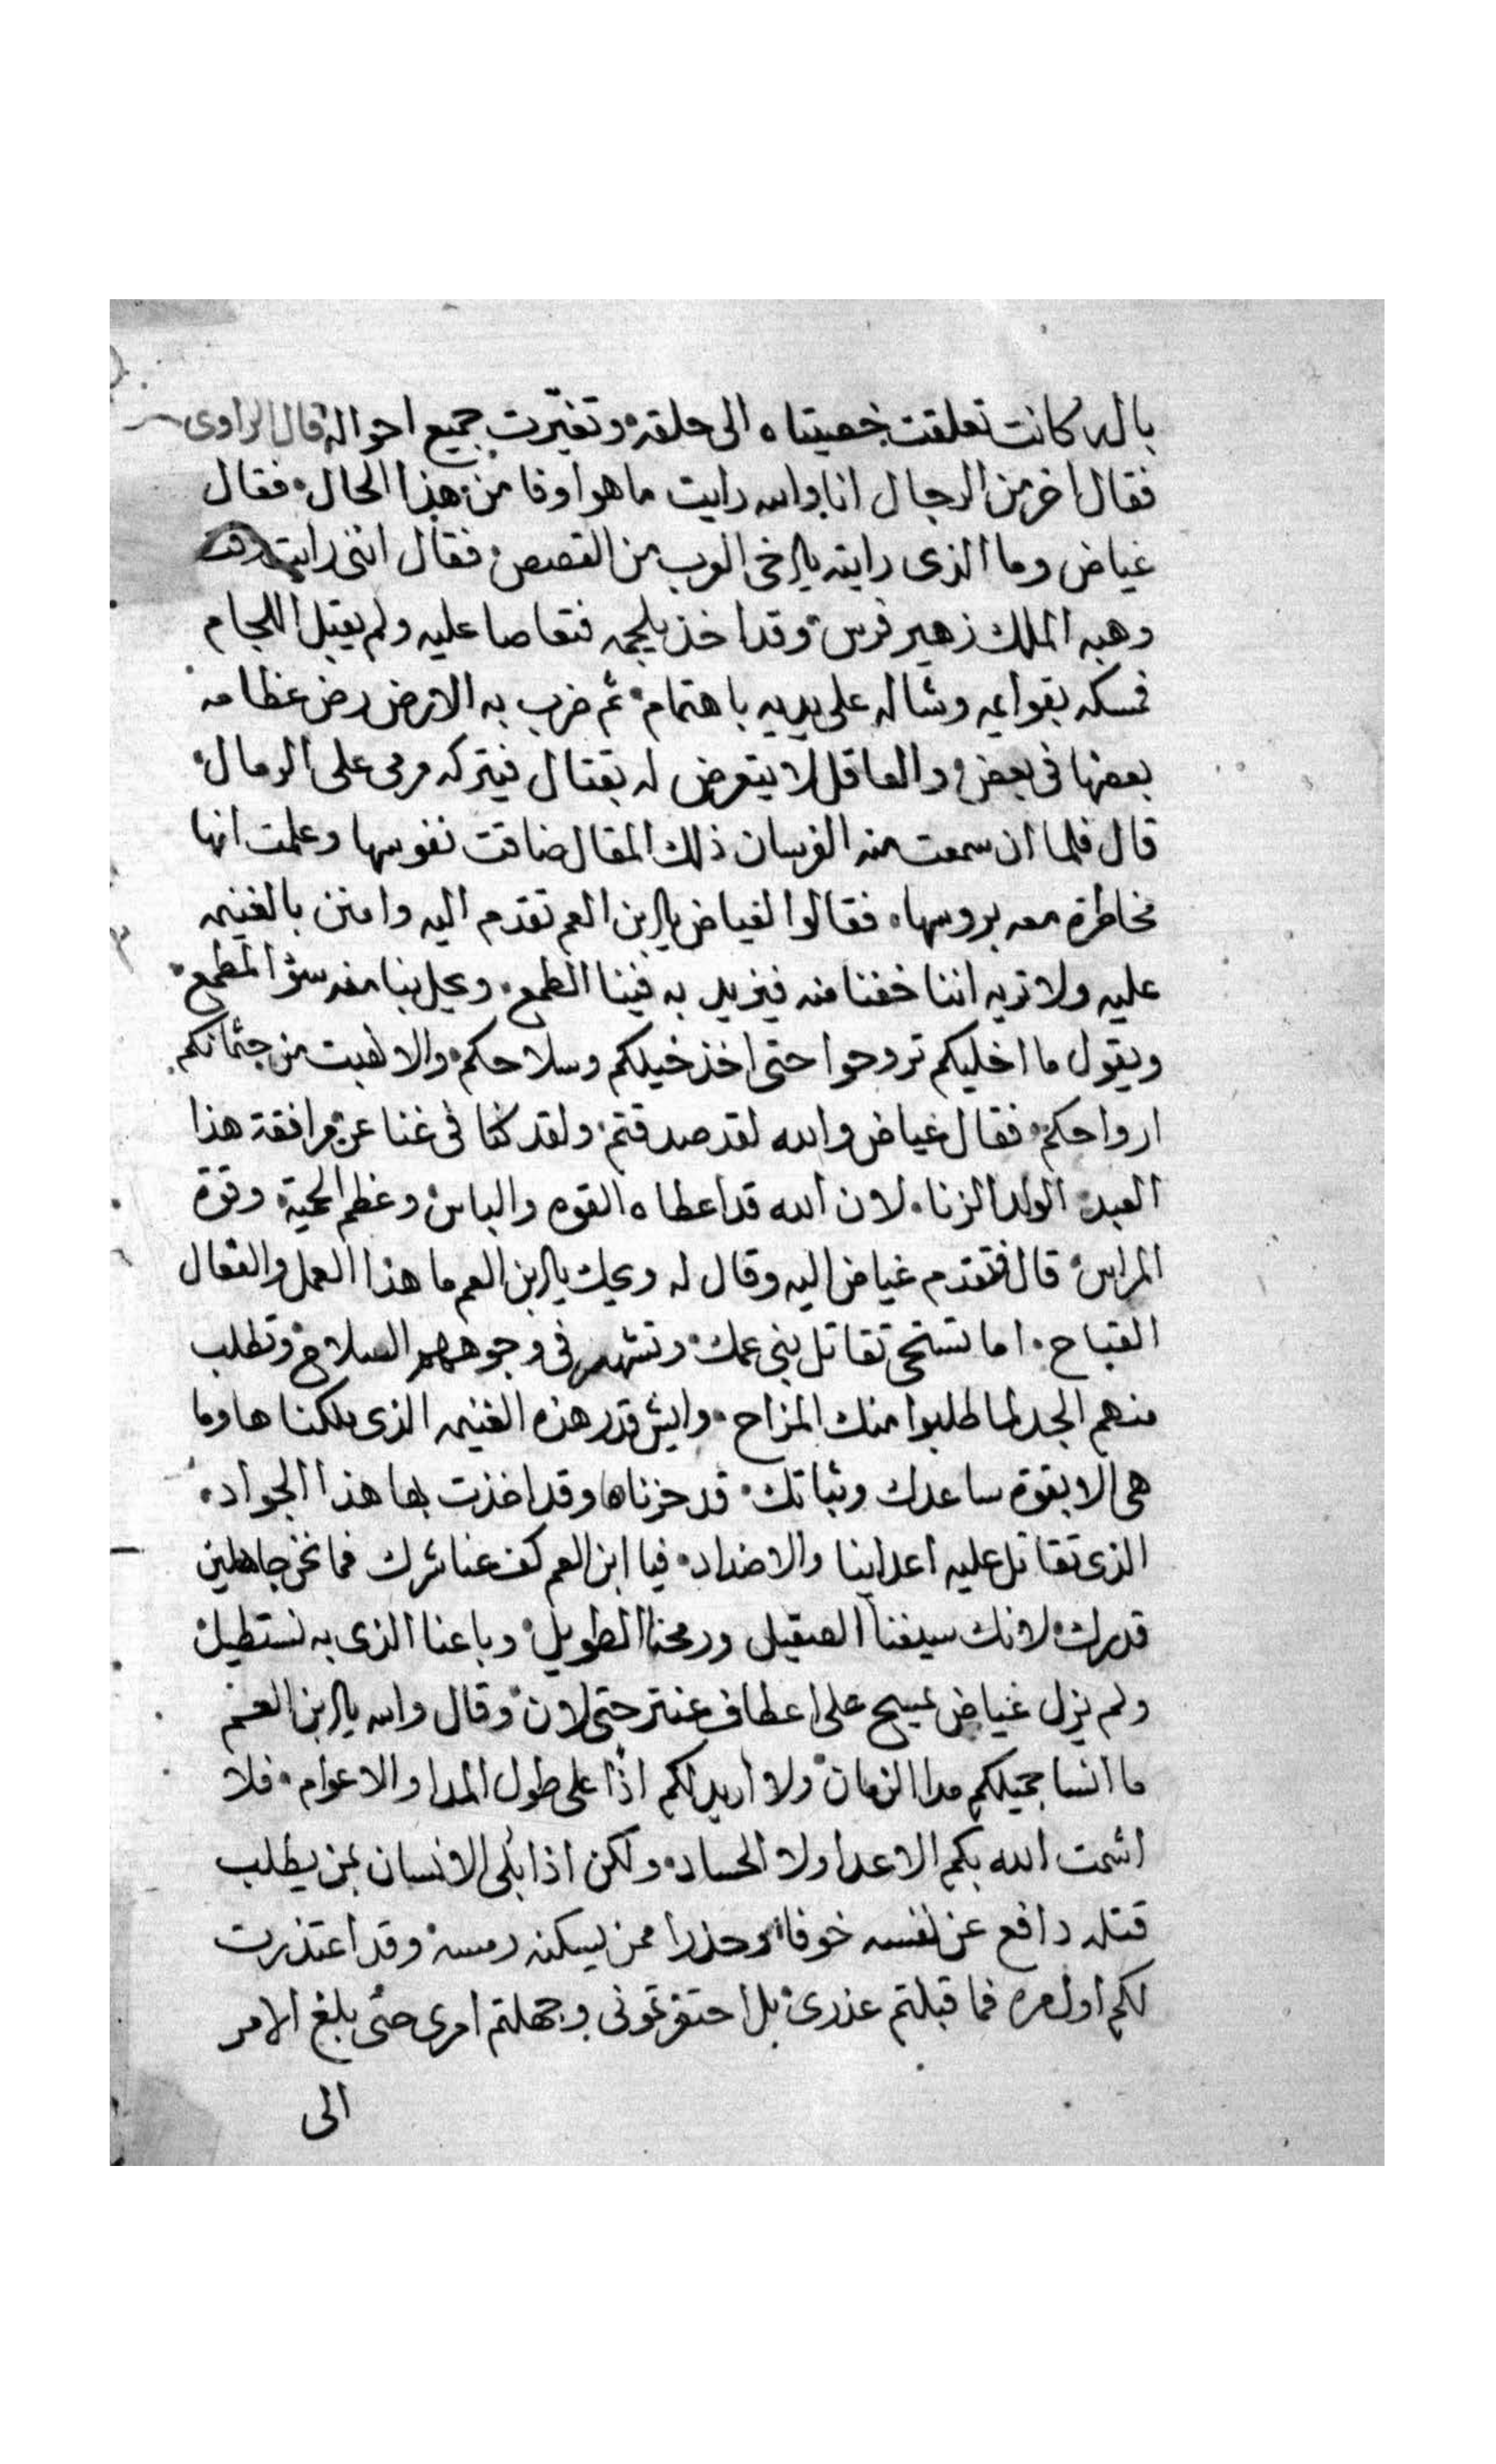 باله كانت تعلقت خصيتاه الى حلقه وتغيّرت جميع احواله قال الراوى
فقال اخر من الرجال انا والله رايت ما هو اوفا من هذا الحال فقال
غياض وما الذى رايته يا اخى العرب من القصص فقال اننى رايته وقد
وهبه الملك زهير فرس وقد اخذ يلجمه فتعاصا عليه ولم يقبل اللجام
فمسكه بقوايمه وشاله على يديه باهتمام ثم ضرب به الارض رض عظامه
بعضها فى بعض والعاقل لا يتعرض له بقتال فيتركه مرمى على الرمال
قال فلما ان سمعت منه الفرسان ذلك المقال ضاقت نفوسها وعلمت انها
مخاطرة معه بروسها فقالوا لغياض يا ابن العم تقدم اليه وامنن بالغنيمه
عليه ولا تريه اننا خفنا منه فيزيد به فينا الطمع ويحل بنا منه سؤ المطمع
ويقول ما اخليكم تروحوا حتى اخذ خيلكم وسلاحكم والا نهبت من جثمانكم
ارواحكم فقال غياض والله لقد صدقتم ولقد كنا فى غنا عن مرافقة هذا
العبد الولد الزنا لان الله قد اعطاه القوه والباس وعظم الحمية وقوة
المراس قال فتقدم غياض اليه وقال له ويحك يا ابن العم ما هذا العمل والفعال
القباح اما تستحى تقاتل بنى عمك وتشهر فى وجوههم السلاح وتطلب
منهم الجد لما طلبوا منك المزاح وايش قدر هذه الغنيمه الذى ملكناها وما
هى الا بقوة ساعدك وثباتك قد حزناها وقد اخذت بها هذا الجواد
الذى تقاتل عليه اعداينا والاضداد فيا ابن العم كف عنا شرك فما نحن جاهلين
قدرك لانك سيفنا الصقيل ورمحنا الطويل وباعنا الذى به نستطيل
ولم يزل غياض يمسح على اعطاف عنتر حتى لان وقال والله يا ابن العم
ما انسا جميلكم مدا الزمان ولا اريد لكم اذًا على طول المدا والاعوام فلا
اشمت الله بكم الاعدا ولا الحساد ولكن اذا بُلى الانسان بمن يطلب
قتله دافع عن نفسه خوفا وحذرا ممن يسكنه رمسه وقد اعتذرت
لكم اول مره فما قبلتم عذرى بل احتقرتمونى وجهلتم امرى حتى بلغ الامر
الى